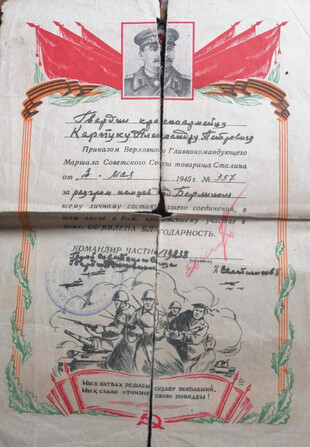 Гвардии красноармейцу
Карпуку Александру Петровичу
Приказом Верховного Главнокомандующего
Маршала Советского Союза товарища Сталина
от 2 мая 1945 г. № 357
за разгром немцев под Берлином
всему личному составу нашего соединения, в
том числе и Вам, принимавшему участие в
боях, ОБЪЯВЛЕНА БЛАГОДАРНОСТЬ.
КОМАНДИР ЧАСТИ 19838
МЫ В БИТВАХ РЕШАЕМ СУДЬБУ ПОКОЛЕНИЙ,
МЫ К СЛАВЕ ОТЧИЗНУ СВОЮ ПОВЕДЕМ!